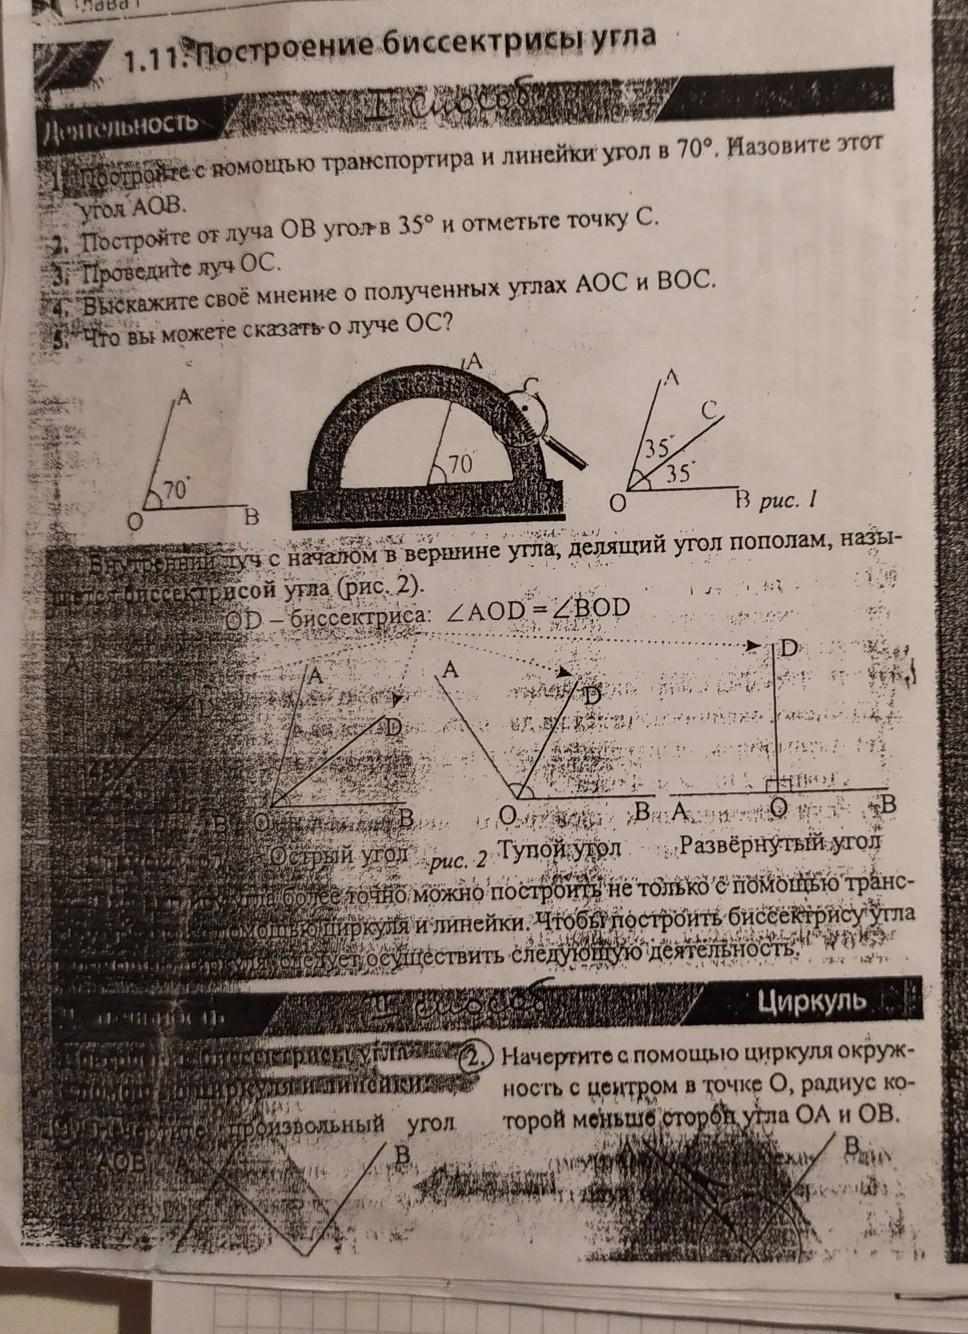 1.11. Построение биссектрисы угла
I способ
Деятельность
1. Постройте с помощью транспортира и линейки угол в 70°. Назовите этот
угол АОВ.
2. Постройте от луча ОВ угол в 35° и отметьте точку С.
3. Проведите луч ОС.
4. Выскажите своё мнение о полученных углах АОС и ВОС.
5. Что вы можете сказать о луче ОС?
A 70° O B
A C 70°
A C 35° 35° O B рис. 1
Внутренний луч с началом в вершине угла, делящий угол пополам, назы-
вается биссектрисой угла (рис. 2).
OD – биссектриса: ∠AOD = ∠BOD
A D B
A D O B
A D O B
D A O B
Острый угол рис. 2 Тупой угол Развёрнутый угол
угла более точно можно построить не только с помощью транс-
помощью циркуля и линейки. Чтобы построить биссектрису угла
циркуля следует осуществить следующую деятельность.
II способ
Циркуль
биссектрисы угла
циркуля и линейки
Начертите произвольный угол
АОВ
A B
2. Начертите с помощью циркуля окруж-
ность с центром в точке О, радиус ко-
торой меньше сторон угла ОА и ОВ.
B